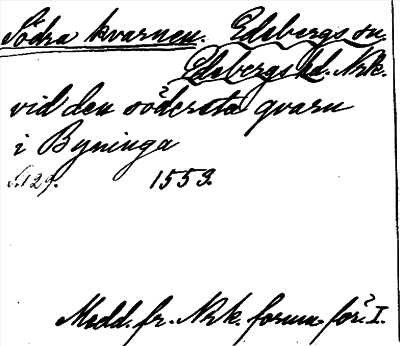 Södra kvarnen. Edsbergs sn.
Edsbergs hd. Nrk.
vid den södersta qvarn
i Byninga
s. 129. 1559.
Medd. fr. Nrk. fornm. för. I.